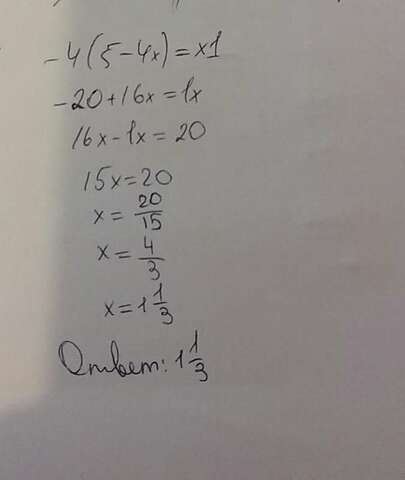 -4(5-4x)=x1
-20+16x=1x
16x-1x=20
15x=20
x=20/15
x=4/3
x=1 1/3
Ответ: 1 1/3